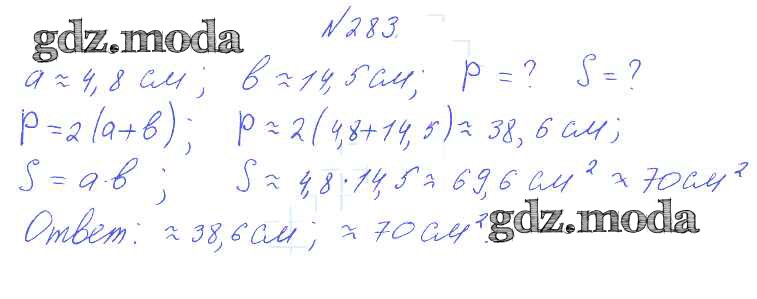 №283.
gdz.moda
a ≈ 4,8 см; в ≈ 14,5 см; P = ? S = ?
P = 2(a+в); P ≈ 2(4,8+14,5) ≈ 38,6 см;
S = a·в; S ≈ 4,8·14,5 ≈ 69,6 см² ≈ 70 см²
Ответ: ≈ 38,6 см; ≈ 70 см².
gdz.moda